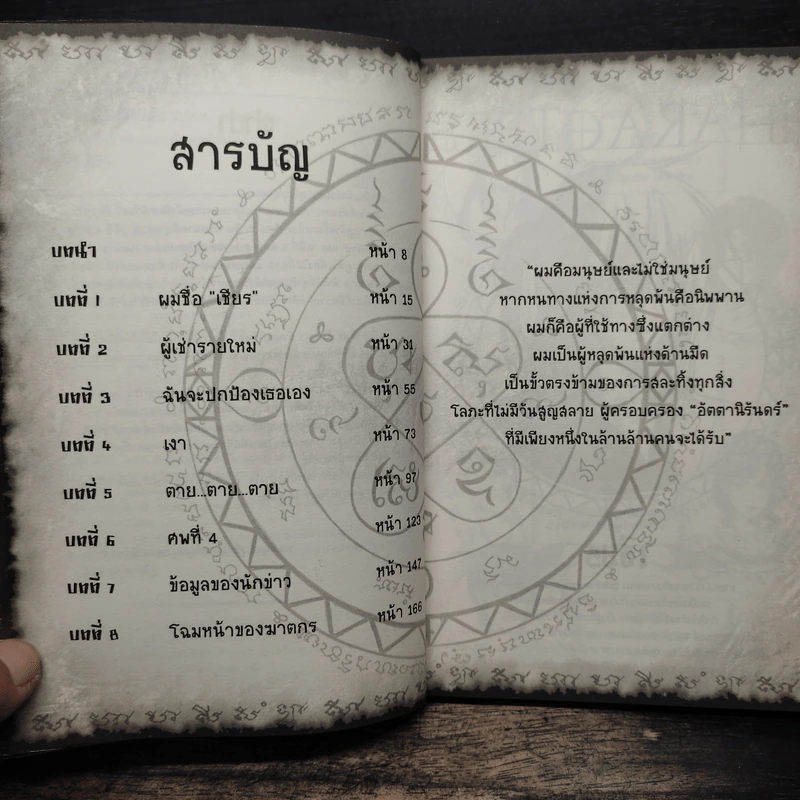 สารบัญ
บทนำ หน้า 8
บทที่ 1 ผมชื่อ "เชียร" หน้า 15
บทที่ 2 ผู้เช่ารายใหม่ หน้า 31
บทที่ 3 ฉันจะปกป้องเธอเอง หน้า 55
บทที่ 4 เงา หน้า 73
บทที่ 5 ตาย...ตาย...ตาย หน้า 97
บทที่ 6 ศพที่ 4 หน้า 123
บทที่ 7 ข้อมูลของนักข่าว หน้า 147
บทที่ 8 โฉมหน้าของฆาตกร หน้า 166
“ผมคือมนุษย์และไม่ใช่มนุษย์
หากหนทางแห่งการหลุดพ้นคือนิพพาน
ผมก็คือผู้ที่ใช้ทางซึ่งแตกต่าง
ผมเป็นผู้หลุดพ้นแห่งด้านมืด
เป็นขั้วตรงข้ามของการสละทิ้งทุกสิ่ง
โลภะที่ไม่มีวันสูญสลาย ผู้ครอบครอง “อัตตานิรันดร์”
ที่มีเพียงหนึ่งในล้านล้านคนจะได้รับ”